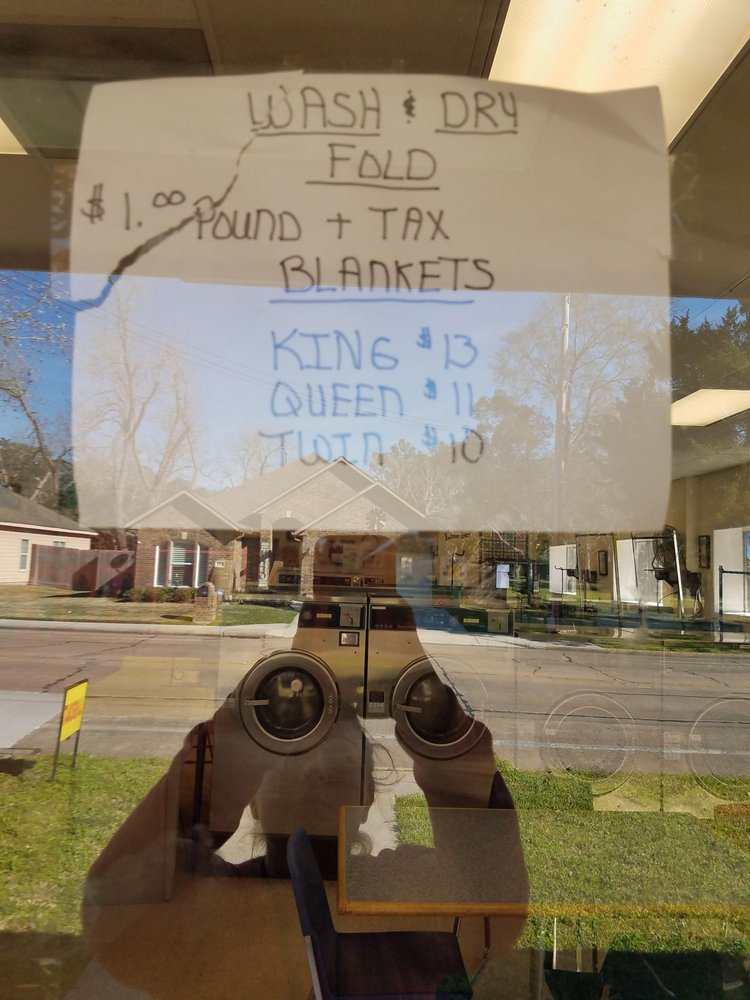 WASH & DRY
FOLD
$1.00 POUND + TAX
BLANKETS
KING $13
QUEEN $11
TWIN $10